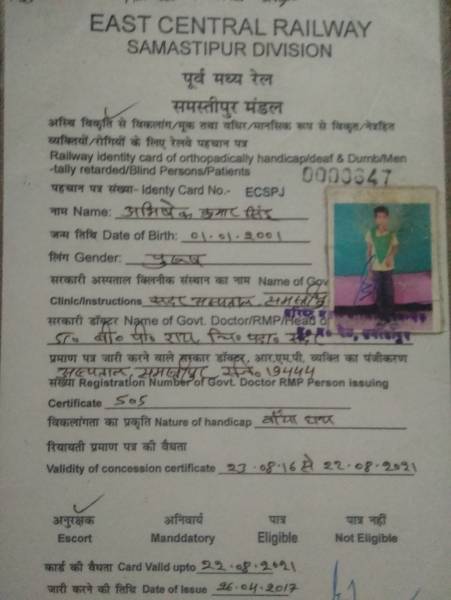 EAST CENTRAL RAILWAY
SAMASTIPUR DIVISION
पूर्व मध्य रेल
समस्तीपुर मंडल
अस्थि विकृति से विकलांग/मूक तथा वधिर/मानसिक रूप से विकृत/नेत्रहित
व्यक्तियों/रोगियों के लिए रेलवे पहचान पत्र
Railway identity card of orthopadically handicap/deaf & Dumb/Men
-tally retarded/Blind Persons/Patients
0000647
पहचान पत्र संख्या- Identy Card No.- ECSPJ
नाम Name: अभिषेक कुमार सिंह
जन्म तिथि Date of Birth: 01.01.2001
लिंग Gender: पुरूष
सरकारी अस्पताल क्लिनीक संस्थान का नाम Name of Gov
Clinic/Instructions सदर अस्पताल, समस्तीपु
सरकारी डॉक्टर Name of Govt. Doctor/RMP/Head of
डा० बी० पी० राय, चि० पदा० सदर
प्रमाण पत्र जारी करने वाले सरकार डॉक्टर, आर.एम.पी. व्यक्ति का पंजीकरण
अस्पताल, समस्तीपुर, रजि० 19444
संख्या Registration Number of Govt. Doctor RMP Person issuing
Certificate 505
विकलांगता का प्रकृति Nature of handicap बाँया हाथ
रियायती प्रमाण पत्र की वैधता
Validity of concession certificate 23.08.16 से 22.08.2021
अनुरक्षक अनिवार्य पात्र पात्र नहीं
Escort Manddatory Eligible Not Eligible
कार्ड की वैधता Card Valid upto 22.08.2021
जारी करने की तिथि Date of Issue 26.04.2017